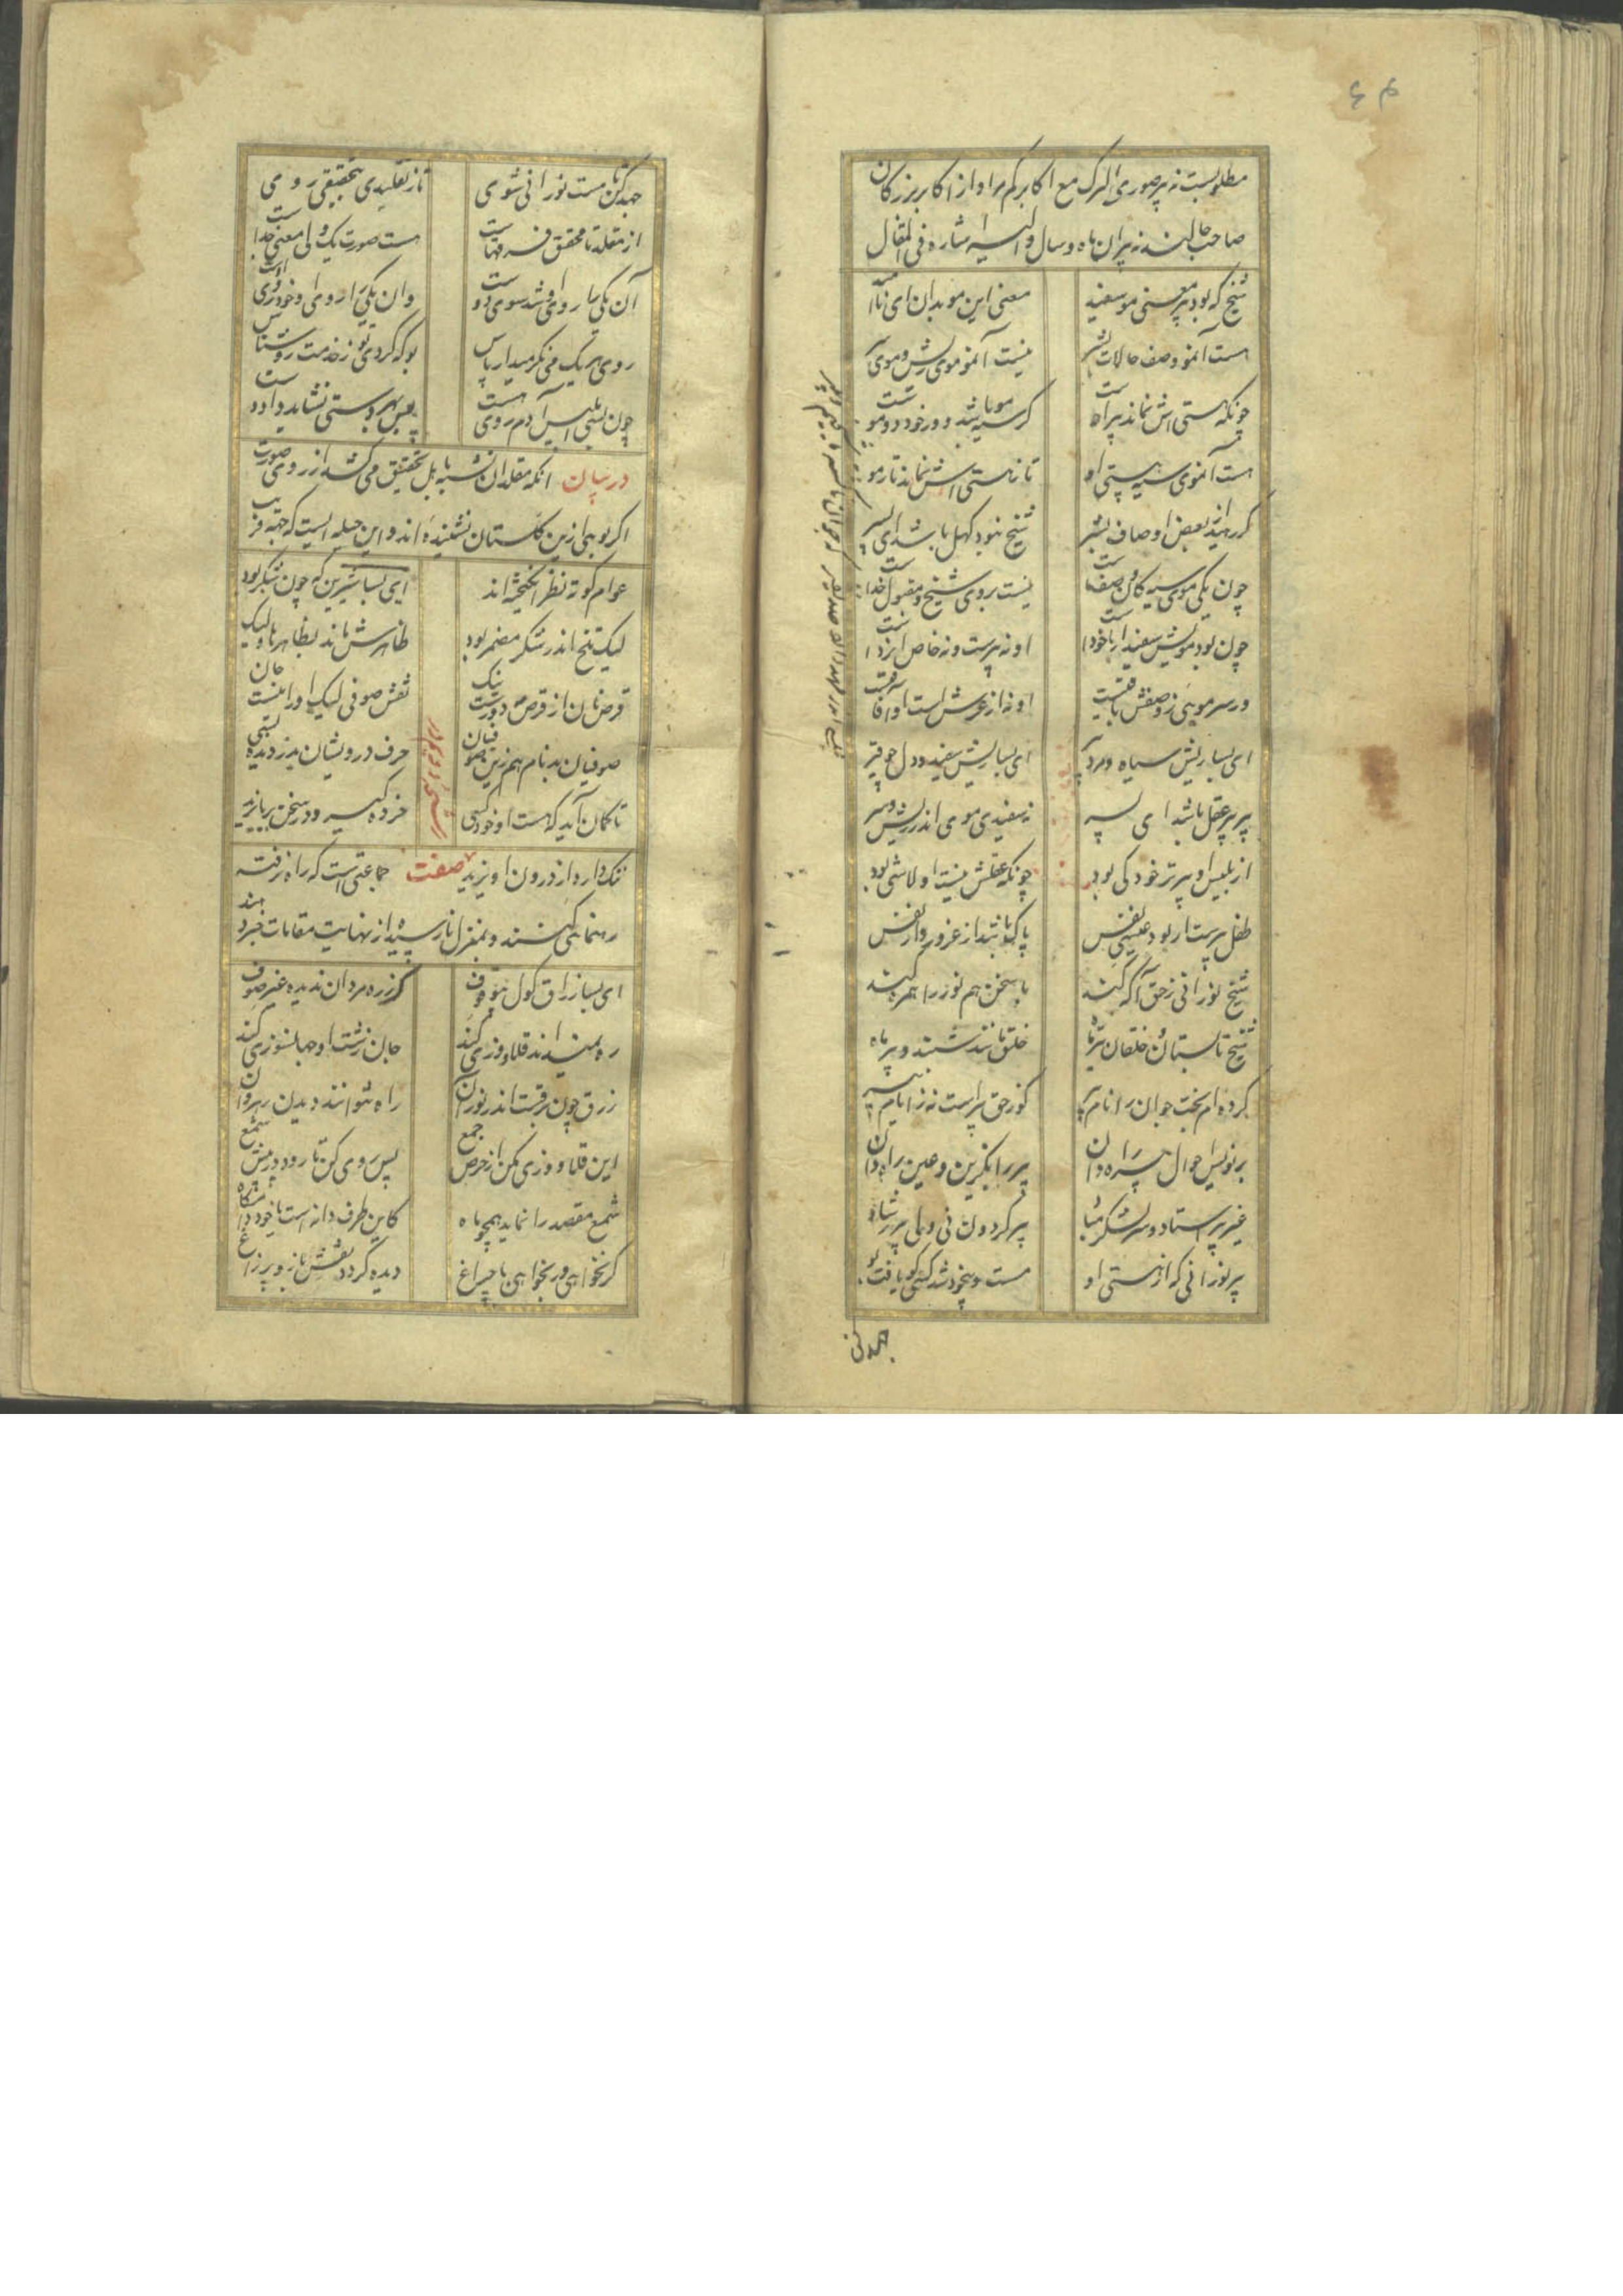 مطلوبست نه پیر صوری البرکة مع اکابرکم مراد از اکابر بزرکان
صاحب حالند نه پیران ماه و سال والیه اشاره فی المقال
شیخ که بود پیر یعنی مو سفید معنی این مو بدان ای ناامید
هست آن مو وصف حالات بشر نیست آن مو موی ریش و موی سر
چونکه هستی اش نماند پیر اوست کر سیه مو باشد او ور خود دو موست
هست آن موی سیه هستی او تا ز هستی اش نماند تار مو
کر رهید از بعض اوصاف بشر شیخ نبود کهل باشد ای پسر
چون یکی موی سیه کان وصف ماست نیست بر وی شیخ و مقبول خداست
چون بود مویش سفید ار با خودست او نه پیرست و نه خاص ایزدست
ور سر مویی ز وصفش باقیست او نه از عرش است او آفاقیست
ای بسا ریش سیاه و مرد پیر ای بسا ریش سفید و دل چو قیر
پیر پیر عقل باشد ای پسر نه سفیدی موی اندر ریش و سر
از بلیس او پیرتر خود کی بود چونکه عقلش نیست او لاشی بود
طفل پیرست ار بود عیسی نفس پاک باشد از غرور و از نفس
شیخ نورانی ز حق آکه کند با سخن هم نور را همره کند
شیخ تابستان و خلقان تیر ماه خلق مانند شبند و پیر ماه
کرده ام بخت جوان را نام پیر کو ز حق پیر است نه ز ایام پیر
بر نویس احوال پیر راه دان پیر را بکزین و عین راه دان
غیر پیر استاد و سر لشکر مباد پیر کردون نی ولی پیر رشاد
پیر نورانی که از هستی او مست و بیخود شد کسی کو یافت بو
جهد کن
جهد کن تا مست نورانی شوی تا ز تقلیدی بتحقیقی روی
از مقلد تا محقق فرقهاست هست صورت یک ولی معنی جداست
آن یکی را روی او شد سوی دوست وان یکی را روی او خود روی اوست
روی هر یک می نکر میدار پاس بو که کردی تو ز خدمت روشناس
چون بسی ابلیس آدم روی هست پس بهر دستی نشاید داد دست
در بیان انکه مقلدان تشبه باهل تحقیق می کنند از روی صورت
اکر بویی ازین کلستان نشنیده اند و این حیله ایست که جهة فریب
عوام کوته نظر انکیخته اند ای بسا شیرین که چون شکر بود
لیک تلخ اندر شکر مضمر بود ظاهرش ماند بظاهرها و لیک
قرص نان از قرص مه دورست نیک نقش صوفی لیک او را نیست جان
صوفیان بدنام هم زین صوفیان حرف درویشان بدزدیده بسی
تا کمان آید که هست او خود کسی خرده کیرد در سخن بر بایزید
ننک دارد از درون او یزید صفت جماعتی است که راه نرفته
رهنمایی کنند و بمنزل نارسیده از نهایت مقامات خبر دهند
ای بسا زراق کول بی وقوف کز ره مردان ندیده غیر صوف
ره نمیداند قلاووزی کند جان زشت او جهانسوزی کند
زرق چون برقست اندر نور آن راه نتوانند دیدن رهروان
این قلاووزی مکن از حرص جمع پس روی کن تا رود در پیش شمع
شمع مقصد را نماید همچو ماه کاین طرف دانه است یا خود دامکاه
کر نخواهی ور بخواهی با چراغ دیده کردد نقش باز و پر زاغ